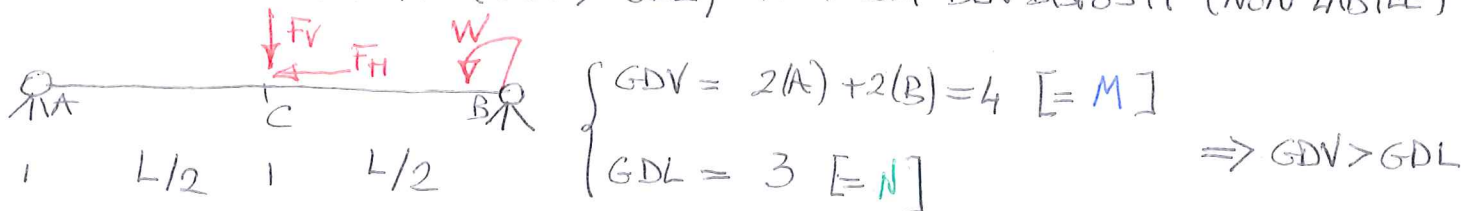 FV
FH
W
A
C
B
L/2
L/2
GDV = 2(A) + 2(B) = 4 [= M]
GDL = 3 [= N]
⇒ GDV > GDL